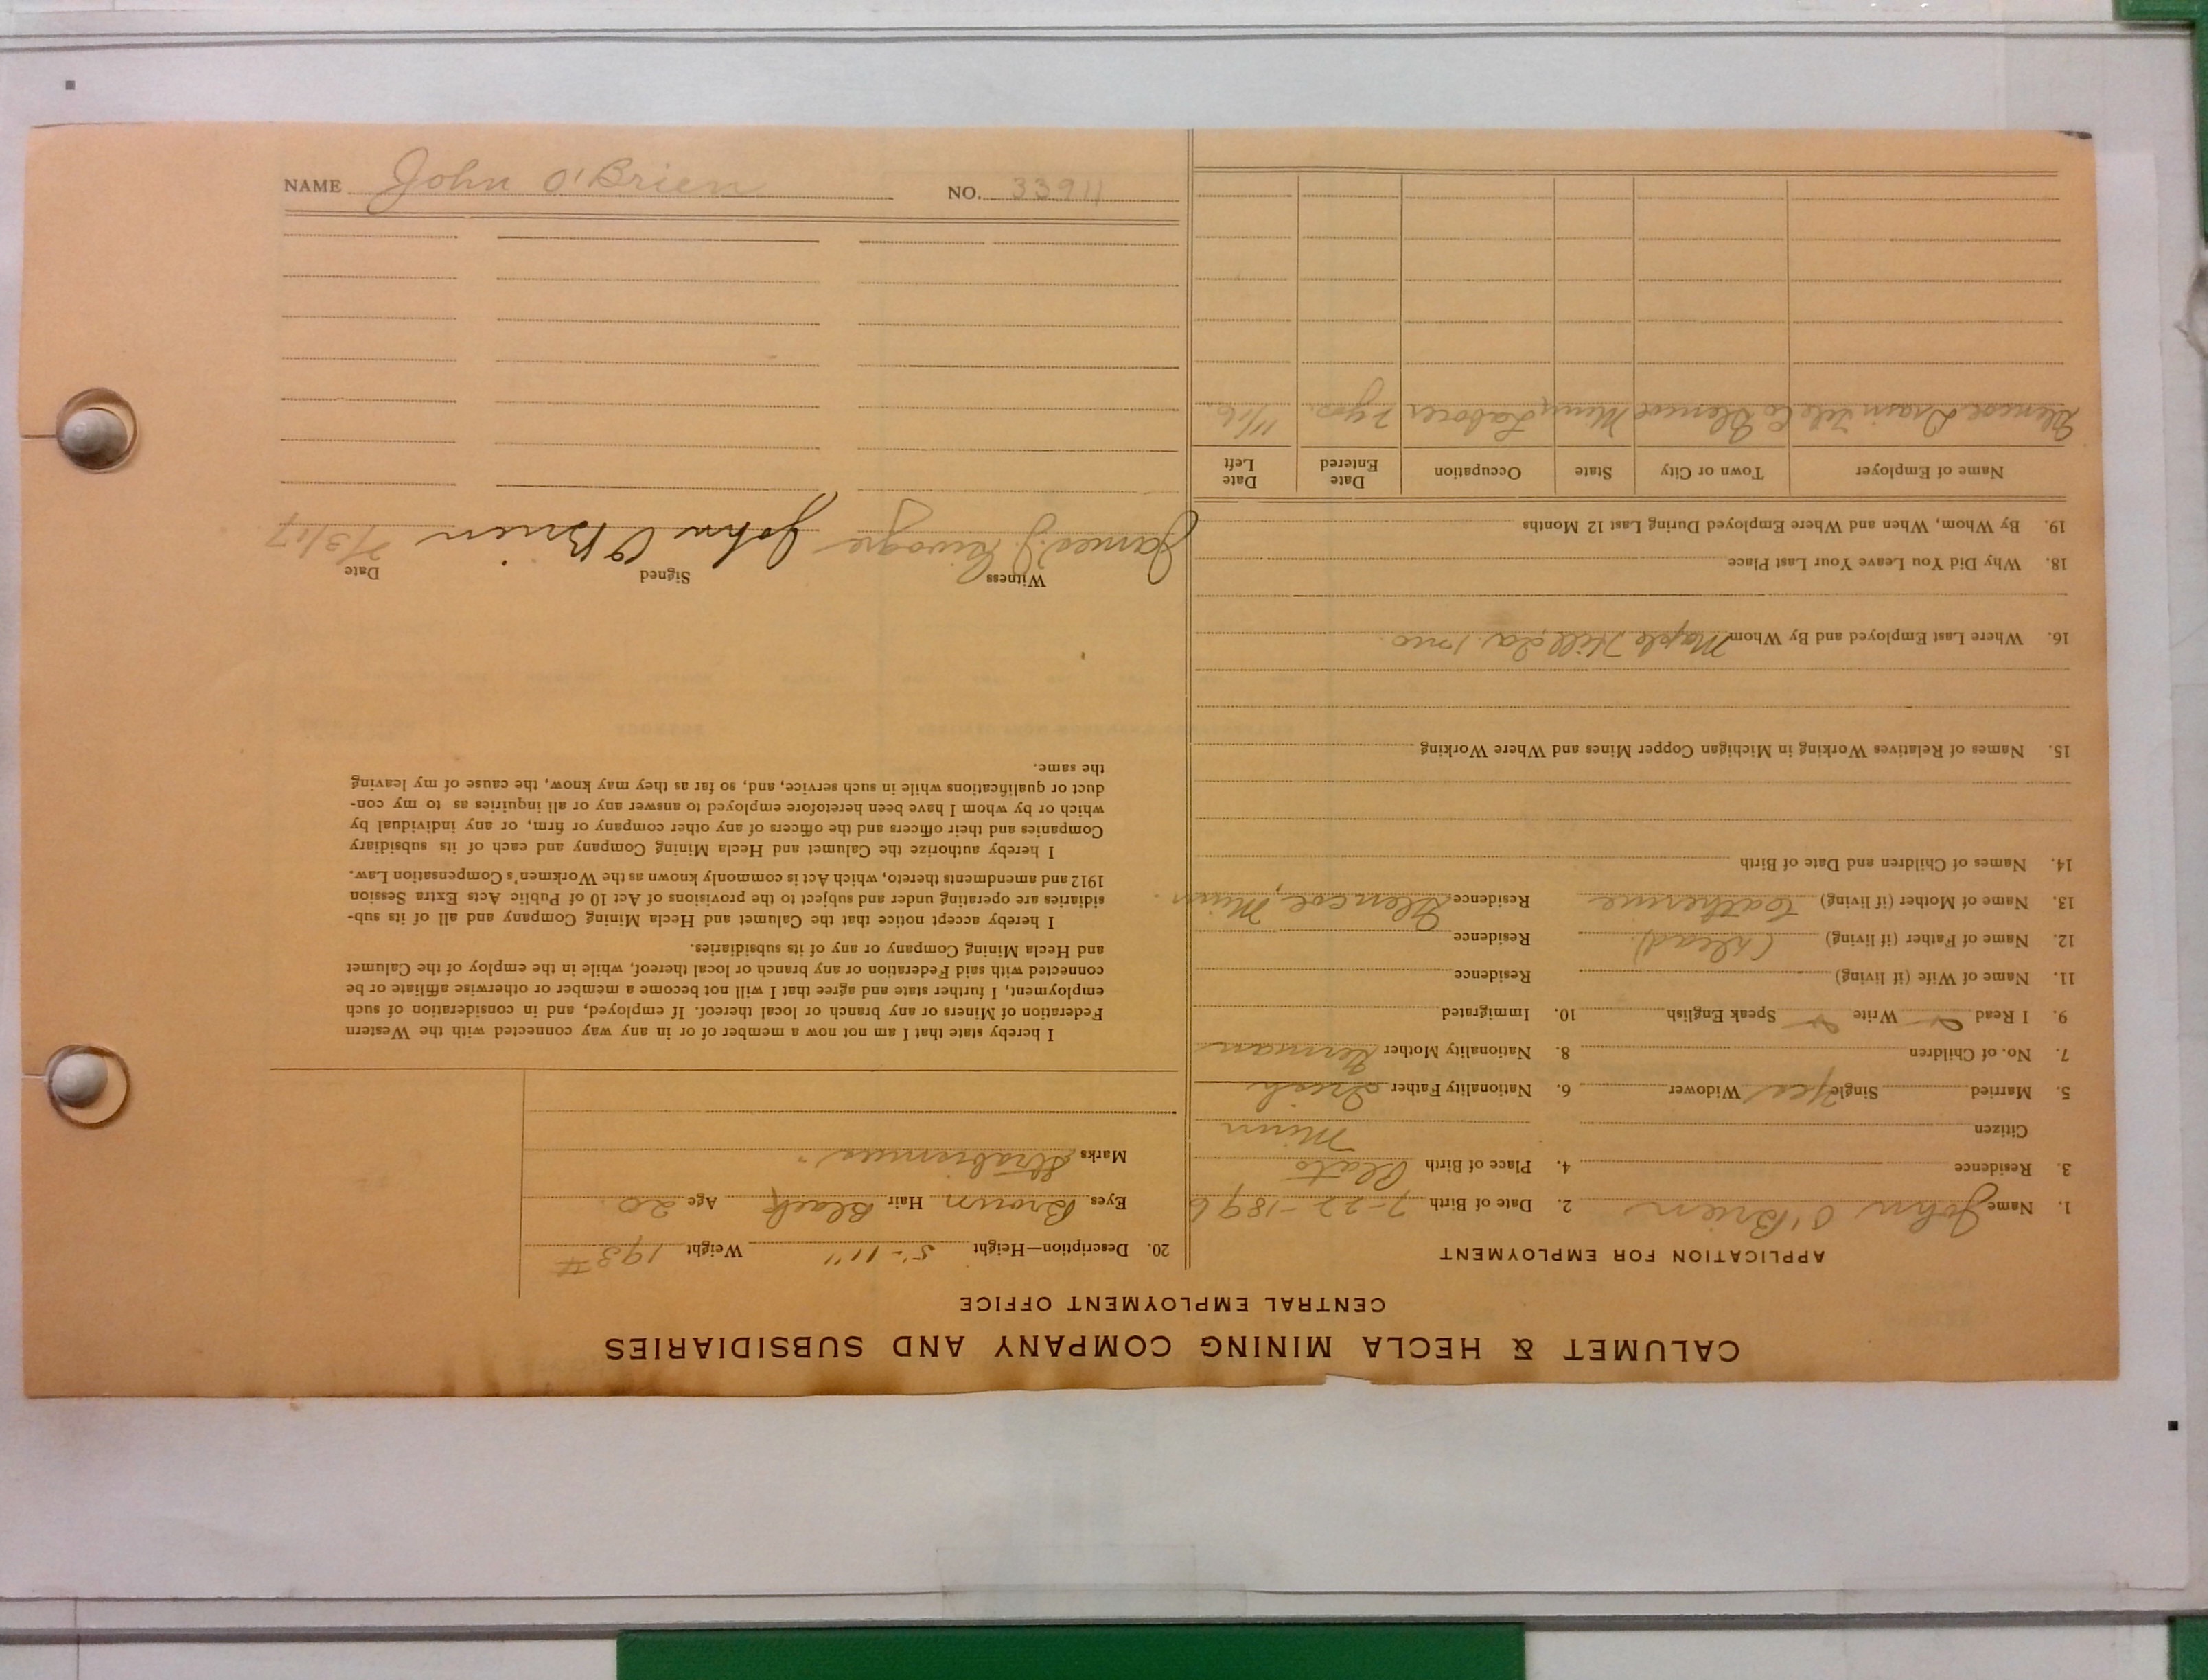 CALUMET & HECLA MINING COMPANY AND SUBSIDIARIES
CENTRAL EMPLOYMENT OFFICE
APPLICATION FOR EMPLOYMENT
1. Name John O'Brien 2. Date of Birth 7-22-1896
3. Residence 4. Place of Birth Plato
Citizen Minn
5. Married Single Yes Widower 6. Nationality Father Irish
7. No. of Children 8. Nationality Mother German
9. I Read Write Speak English 10. Immigrated
11. Name of Wife (if living) Residence
12. Name of Father (if living) (dead) Residence
13. Name of Mother (if living) Catherine Residence Glencoe, Minn
14. Names of Children and Date of Birth
15. Names of Relatives Working in Michigan Copper Mines and Where Working
16. Where Last Employed and By Whom Maple Hill 1 mo
18. Why Did You Leave Your Last Place
19. By Whom, When and Where Employed During Last 12 Months
Name of Employer Town or City State Occupation Date Entered Date Left
Glencoe Drain Tile Co Glencoe Minn Laborer 2 yrs. 11/16
20. Description—Height 5'-11" Weight 193#
Eyes Brown Hair Black Age 20
Marks
I hereby state that I am not now a member of or in any way connected with the Western
Federation of Miners or any branch or local thereof. If employed, and in consideration of such
employment, I further state and agree that I will not become a member or otherwise affiliate or be
connected with said Federation or any branch or local thereof, while in the employ of the Calumet
and Hecla Mining Company or any of its subsidiaries.
I hereby accept notice that the Calumet and Hecla Mining Company and all of its sub-
sidiaries are operating under and subject to the provisions of Act 10 of Public Acts Extra Session
1912 and amendments thereto, which Act is commonly known as the Workmen's Compensation Law.
I hereby authorize the Calumet and Hecla Mining Company and each of its subsidiary
Companies and their officers and the officers of any other company or firm, or any individual by
which or by whom I have been heretofore employed to answer any or all inquiries as to my con-
duct or qualifications while in such service, and, so far as they may know, the cause of my leaving
the same.
Witness Signed Date
James J. John O'Brien 2/3/17
NAME John O'Brien NO. 33911